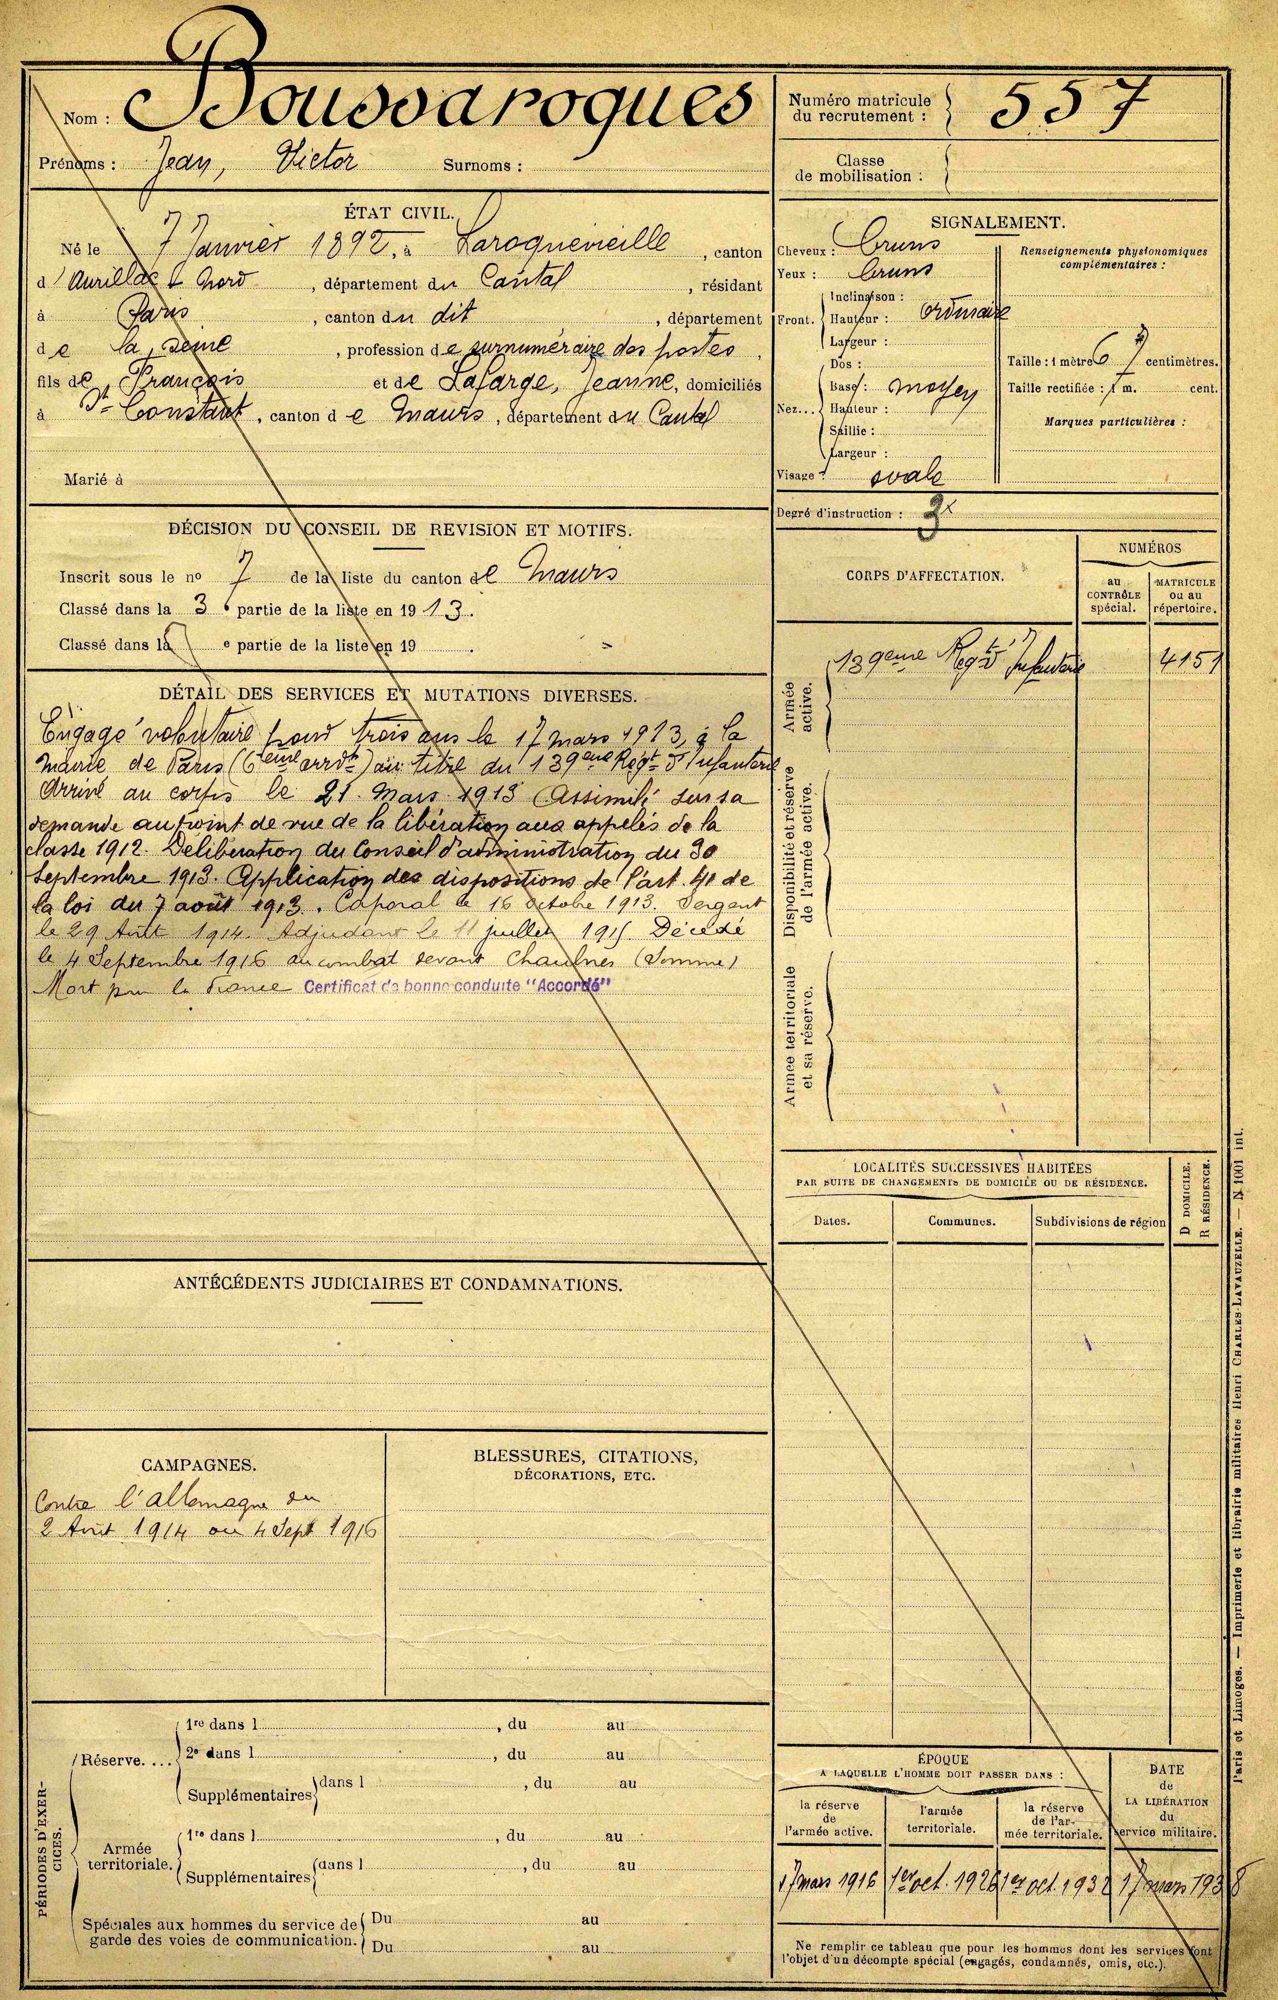 Nom : Boussaroques
Prénoms : Jean, Victor Surnoms :
Numéro matricule du recrutement : 557
Classe de mobilisation :
ÉTAT CIVIL.
Né le 7 Janvier 1892, à Laroquevieille, canton
d'Aurillac Nord, département du Cantal, résidant
à Paris, canton du dit, département
de la Seine, profession de surnuméraire des postes,
fils de François et de Lafarge, Jeanne, domiciliés
à St Constant, canton de Maurs, département du Cantal
Marié à
SIGNALEMENT.
Cheveux : bruns
Yeux : bruns
Front. Inclinaison :
Hauteur : ordinaire
Largeur :
Nez... Dos :
Base : moyen
Hauteur :
Saillie :
Largeur :
Visage : ovale
Renseignements physionomiques
complémentaires :
Taille : 1 mètre 67 centimètres.
Taille rectifiée : 1 m. cent.
Marques particulières :
Degré d'instruction : 3
DÉCISION DU CONSEIL DE REVISION ET MOTIFS.
Inscrit sous le no 7 de la liste du canton de Maurs
Classé dans la 3e partie de la liste en 1913.
Classé dans la e partie de la liste en 19 .
DÉTAIL DES SERVICES ET MUTATIONS DIVERSES.
Engagé volontaire pour trois ans le 17 mars 1913, à la
Mairie de Paris (6eme arrdt) au titre du 139eme Regt d'Infanterie
Arrivé au corps le 21 Mars 1913 (Assimilé sur sa
demande au point de vue de la libération aux appelés de la
classe 1912. Délibération du Conseil d'administration du 30
Septembre 1913. Application des dispositions de l'art. 41 de
la loi du 7 août 1913. Caporal le 16 octobre 1913. Sergent
le 29 Août 1914. Adjudant le 11 juillet 1915 Décédé
le 4 Septembre 1916 au combat devant Chaulnes (Somme)
Mort pour la France Certificat de bonne conduite "Accordé"
CORPS D'AFFECTATION.
NUMÉROS
au CONTRÔLE spécial.
MATRICULE ou au répertoire.
Armée active.
139eme Regt d'Infanterie 4151
Disponibilité et réserve de l'armée active.
Armée territoriale et sa réserve.
LOCALITÉS SUCCESSIVES HABITÉES
PAR SUITE DE CHANGEMENTS DE DOMICILE OU DE RÉSIDENCE.
Dates. Communes. Subdivisions de région
D DOMICILE.
R RÉSIDENCE.
ANTÉCÉDENTS JUDICIAIRES ET CONDAMNATIONS.
CAMPAGNES.
Contre l'allemagne du
2 Août 1914 au 4 Sept 1916
BLESSURES, CITATIONS,
DÉCORATIONS, ETC.
PÉRIODES D'EXERCICES.
Réserve.... 1re dans l , du au
2e dans l , du au
Supplémentaires dans l , du au
Armée territoriale. 1re dans l , du au
Supplémentaires dans l , du au
Spéciales aux hommes du service de
garde des voies de communication. Du au
Du au
ÉPOQUE
A LAQUELLE L'HOMME DOIT PASSER DANS :
la réserve de l'armée active.
l'armée territoriale.
la réserve de l'armée territoriale.
DATE de LA LIBÉRATION du service militaire.
17 mars 1916 1er oct. 1926 1er oct. 1932 17 mars 1938
Ne remplir ce tableau que pour les hommes dont les services font
l'objet d'un décompte spécial (engagés, condamnés, omis, etc.).
Paris et Limoges. — Imprimerie et librairie militaires Henri CHARLES-LAVAUZELLE. — N 1001 int.